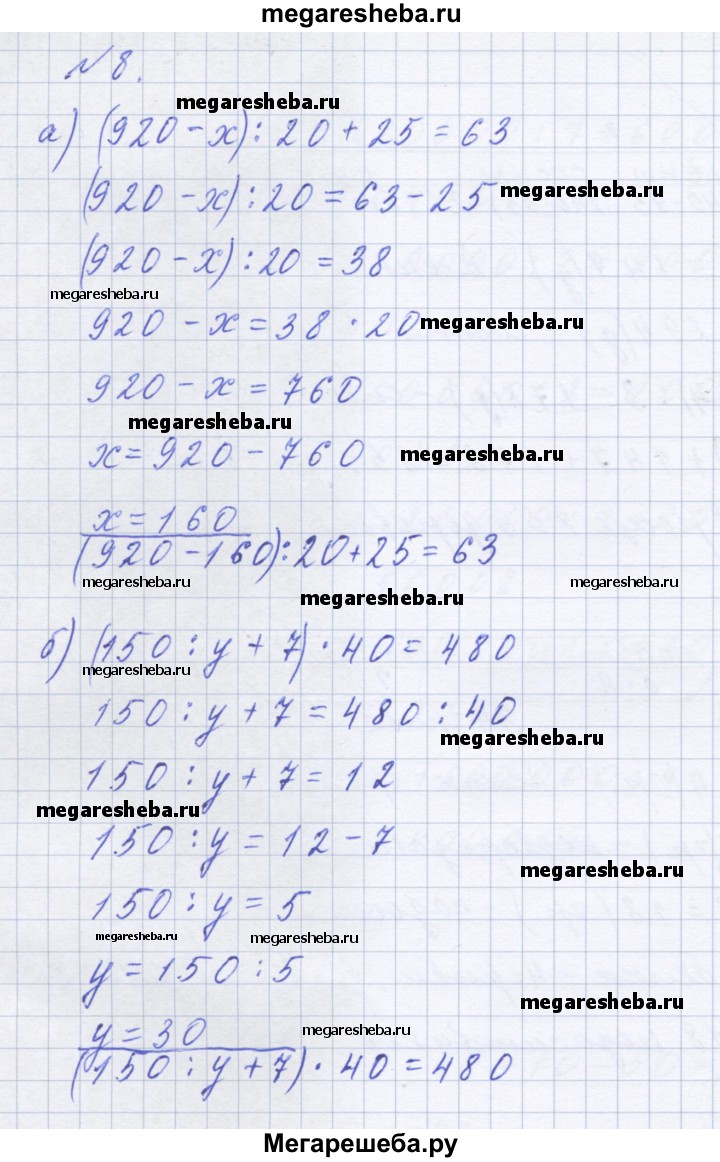 megaresheba.ru
№ 8.
megaresheba.ru
а) (920 - x) : 20 + 25 = 63
(920 - x) : 20 = 63 - 25 megaresheba.ru
(920 - x) : 20 = 38
megaresheba.ru
920 - x = 38 · 20 megaresheba.ru
920 - x = 760
megaresheba.ru
x = 920 - 760 megaresheba.ru
x = 160
(920 - 160) : 20 + 25 = 63
megaresheba.ru megaresheba.ru
megaresheba.ru
б) (150 : y + 7) · 40 = 480
megaresheba.ru
150 : y + 7 = 480 : 40
megaresheba.ru
150 : y + 7 = 12
megaresheba.ru
150 : y = 12 - 7
megaresheba.ru
150 : y = 5
megaresheba.ru megaresheba.ru
y = 150 : 5
megaresheba.ru
y = 30 megaresheba.ru
(150 : y + 7) · 40 = 480
Мегарешеба.ру